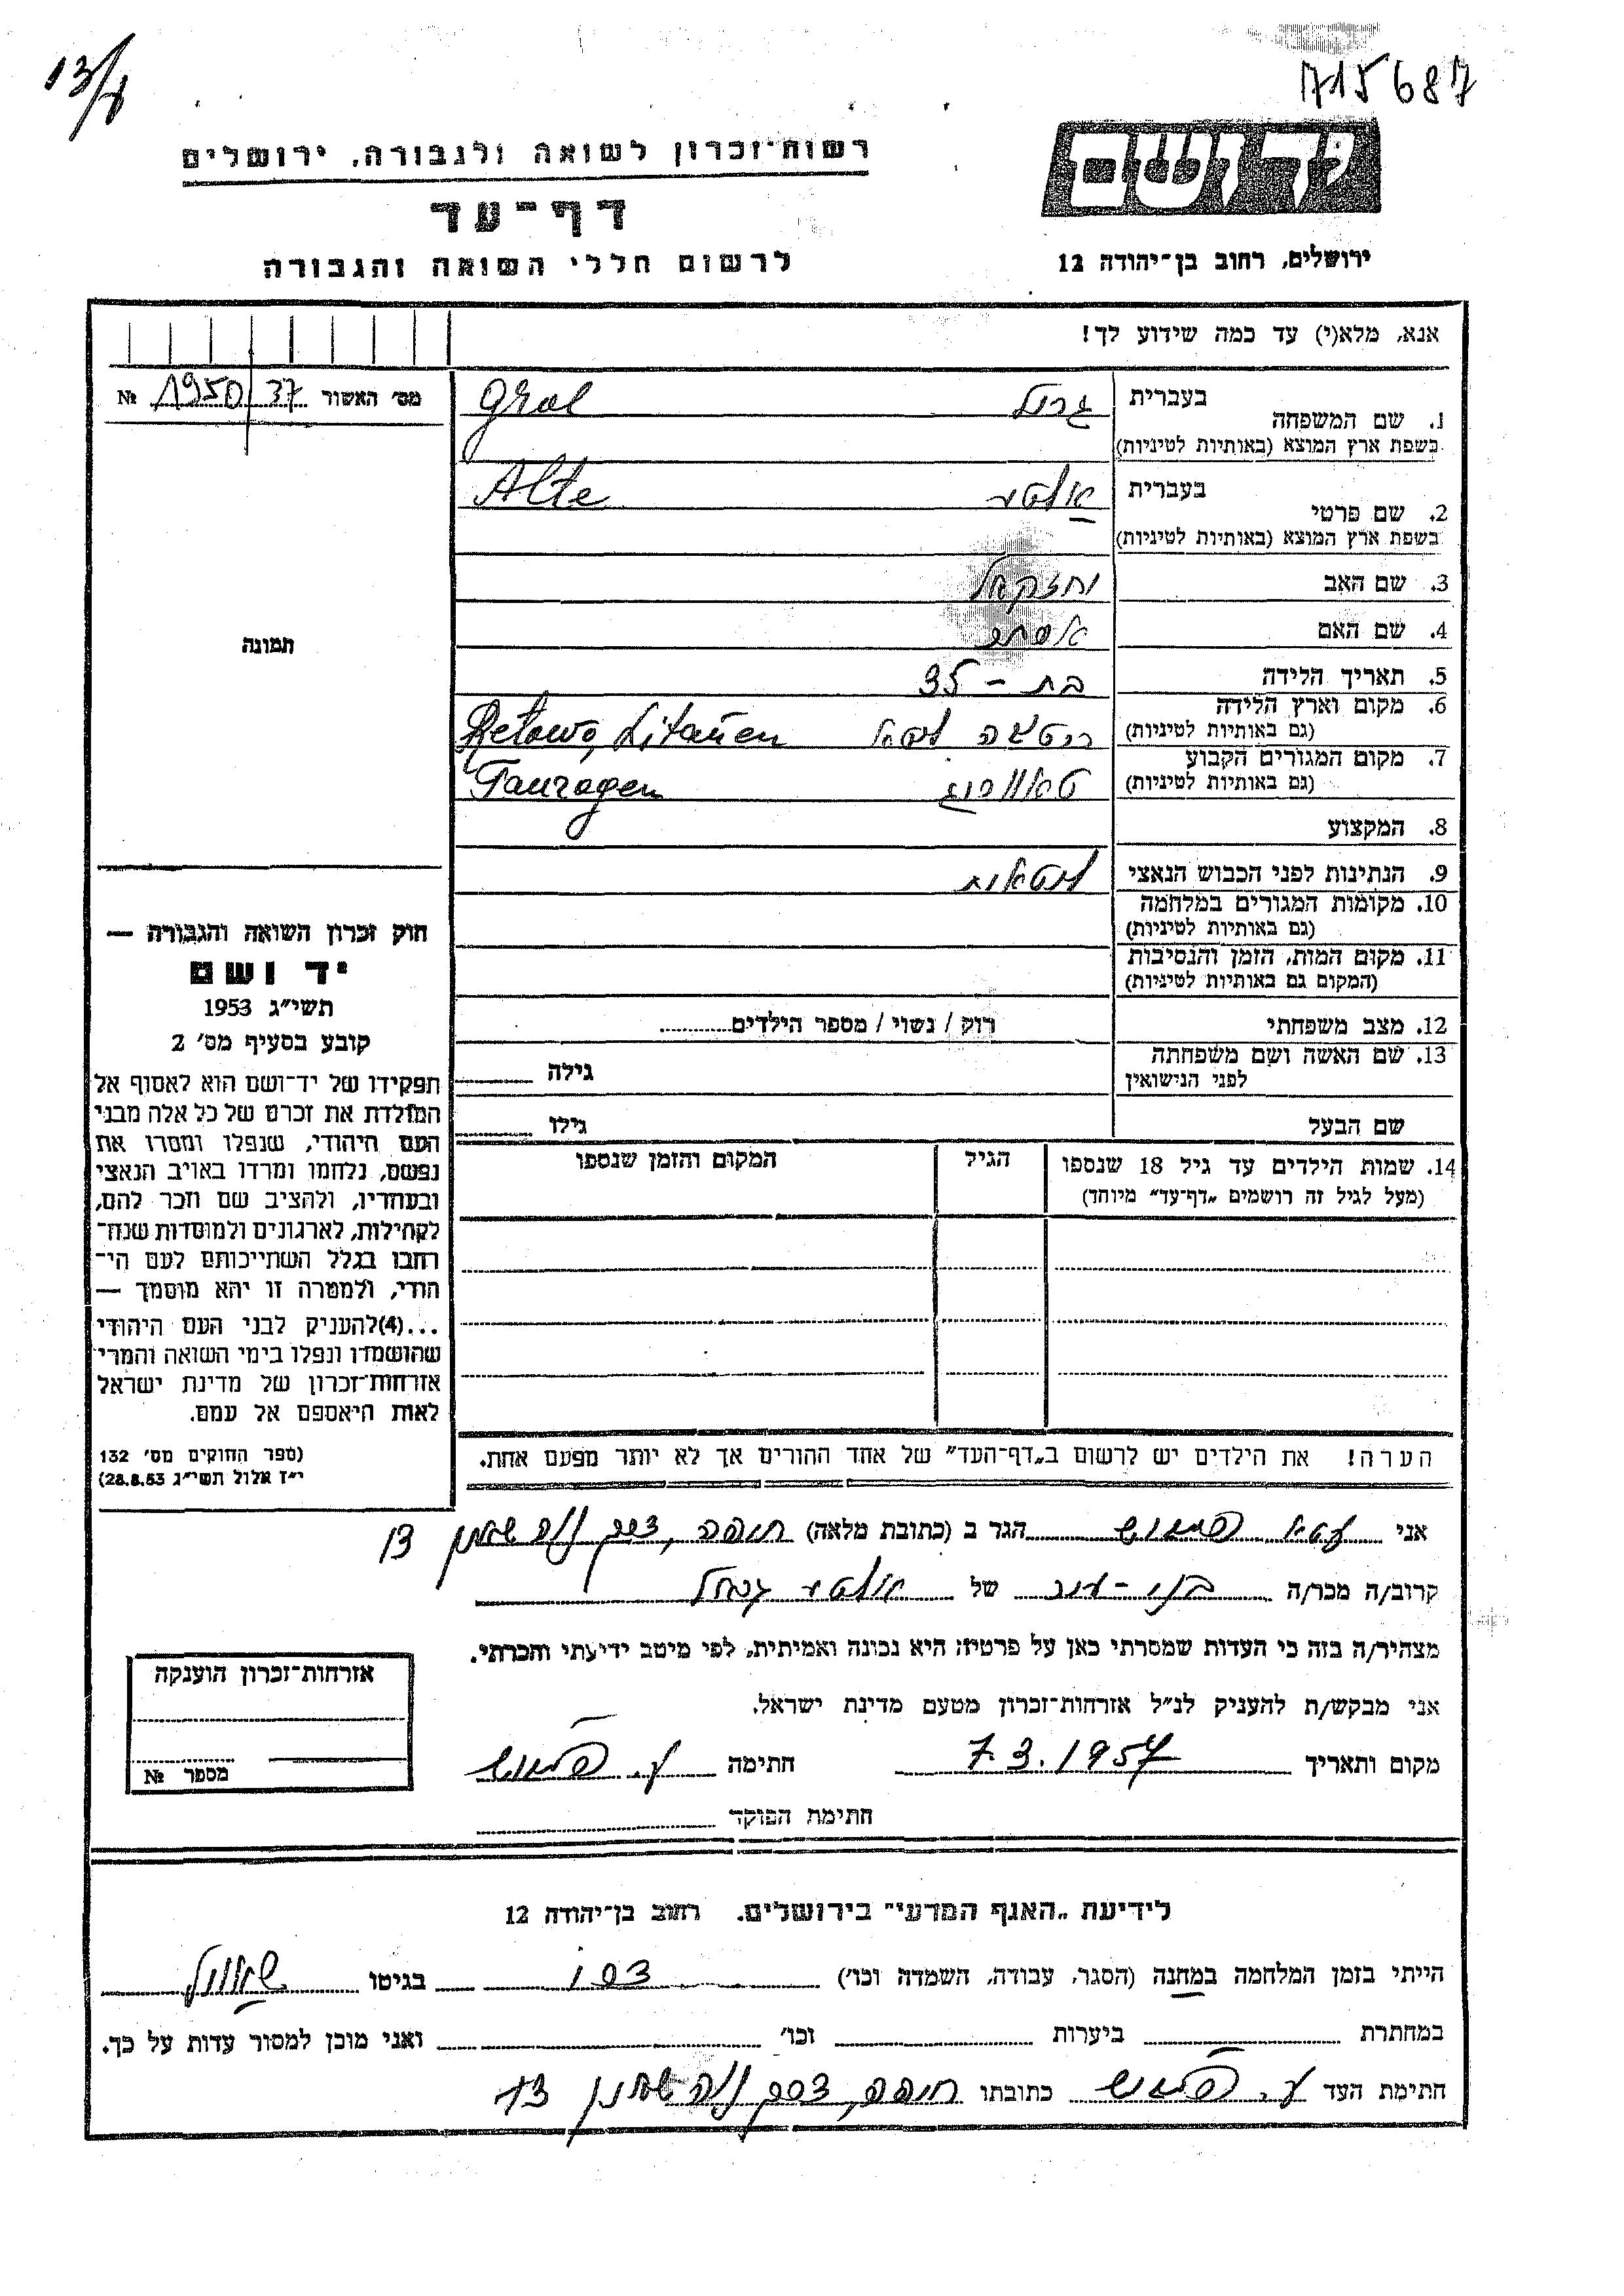 13/8
715687
רשות־זכרון לשואה ולגבורה, ירושלים
יד ושם
דף־עד
לרשום חללי השואה והגבורה
ירושלים, רחוב בן־יהודה 12
אנא, מלא(י) עד כמה שידוע לך!
מס׳ האשור 1950/37 №
1. שם המשפחה בעברית גרול Grol
בשפת ארץ המוצא (באותיות לטיניות)
2. שם פרטי בעברית אלטע Alte
בשפת ארץ המוצא (באותיות לטיניות)
3. שם האב יחזקאל
4. שם האם אסתר
5. תאריך הלידה בת - 35
6. מקום וארץ הלידה Retowo, Litauen
(גם באותיות לטיניות)
7. מקום המגורים הקבוע טאורוג Tauragen
(גם באותיות לטיניות)
8. המקצוע
9. הנתינות לפני הכבוש הנאצי ליטאית
10. מקומות המגורים במלחמה
(גם באותיות לטיניות)
11. מקום המות, הזמן והנסיבות
(המקום גם באותיות לטיניות)
12. מצב משפחתי רוק / נשוי / מספר הילדים
13. שם האשה ושם משפחתה גילה
לפני הנישואין
שם הבעל גילו
14. שמות הילדים עד גיל 18 שנספו הגיל המקום והזמן שנספו
(מעל לגיל זה רושמים „דף־עד״ מיוחד)
תמונה
חוק זכרון השואה והגבורה —
יד ושם
תשי״ג 1953
קובע בסעיף מס׳ 2
תפקידו של יד־ושם הוא לאסוף אל
המולדת את זכרם של כל אלה מבני
העם היהודי, שנפלו ומסרו את
נפשם, נלחמו ומרדו באויב הנאצי
ובעוזריו, ולהציב שם וזכר להם,
לקהילות, לארגונים ולמוסדות שנח־
רבו בגלל השתייכותם לעם הי־
הודי, ולמטרה זו יהא מוסמך —
...(4) להעניק לבני העם היהודי
שהושמדו ונפלו בימי השואה והמרי
אזרחות־זכרון של מדינת ישראל
לאות היאספם אל עמם.
(ספר החוקים מס׳ 132
י״ז אלול תשי״ג 28.8.53)
הערה! את הילדים יש לרשום ב„דף־העד״ של אחד ההורים אך לא יותר מפעם אחת.
אני הגר ב (כתובת מלאה) חיפה, 13
קרוב/ה מכר/ה של אלטע גרול
מצהיר/ה בזה כי העדות שמסרתי כאן על פרטיה היא נכונה ואמיתית, לפי מיטב ידיעתי והכרתי.
אני מבקש/ת להעניק לנ״ל אזרחות־זכרון מטעם מדינת ישראל.
מקום ותאריך 7.3.1957 חתימה
חתימת הפוקד
אזרחות־זכרון הוענקה
מספר №
לידיעת „האגף המדעי״ בירושלים. רחוב בן־יהודה 12
הייתי בזמן המלחמה במחנה (הסגר, עבודה, השמדה וכו׳) בגיטו שאוול
במחתרת ביערות וכו׳ ואני מוכן למסור עדות על כך.
חתימת העד כתובתו חיפה, 13